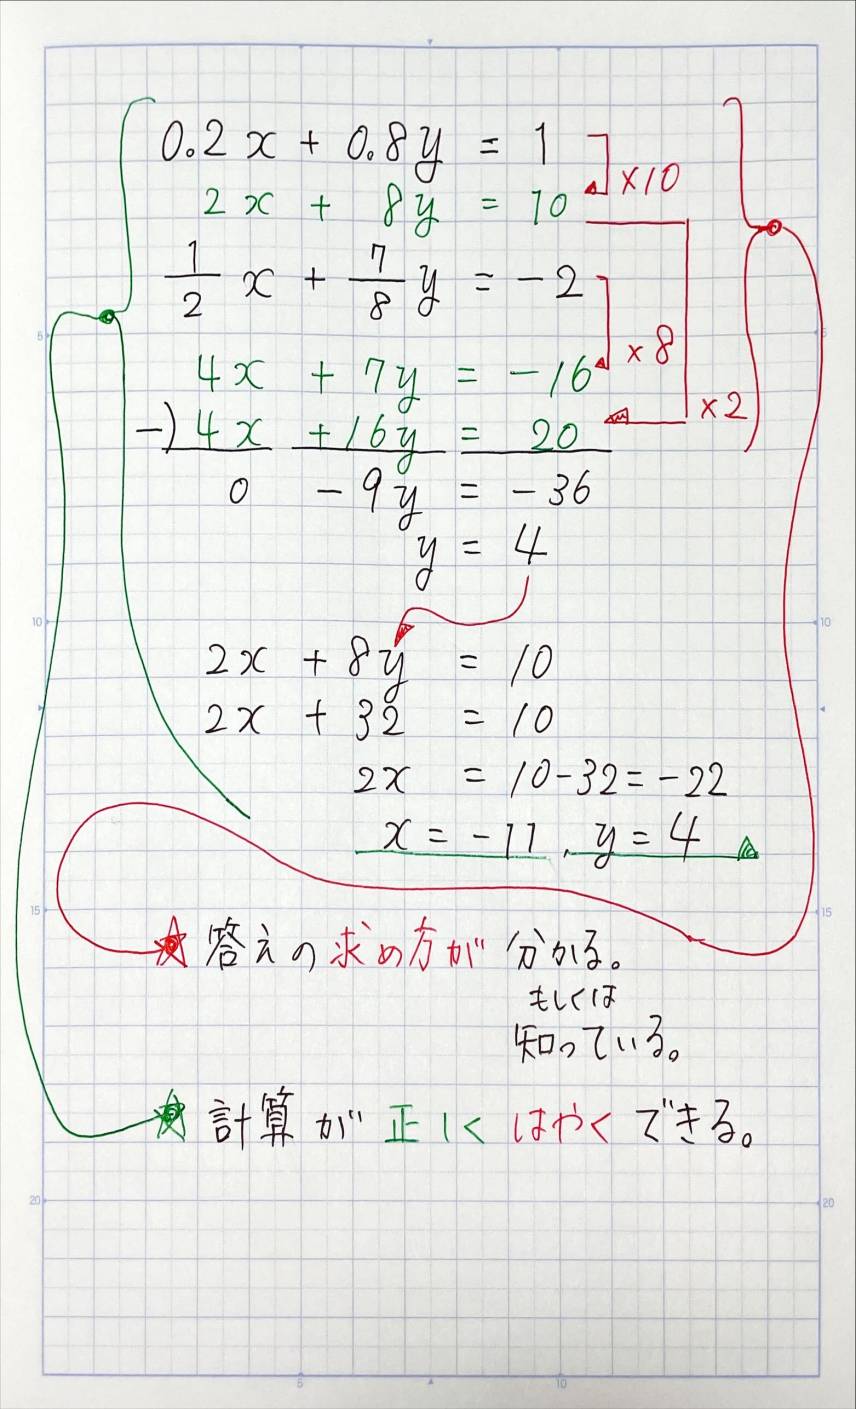 0.2x + 0.8y = 1
×10
2x + 8y = 10
1/2 x + 7/8 y = -2
×8
4x + 7y = -16
×2
-) 4x + 16y = 20
0 - 9y = -36
y = 4
2x + 8y = 10
2x + 32 = 10
2x = 10-32 = -22
x = -11, y = 4
答えの求め方が分かる。
もしくは
知っている。
計算が正しくはやくできる。
5
5
10
10
15
15
20
20
5
10